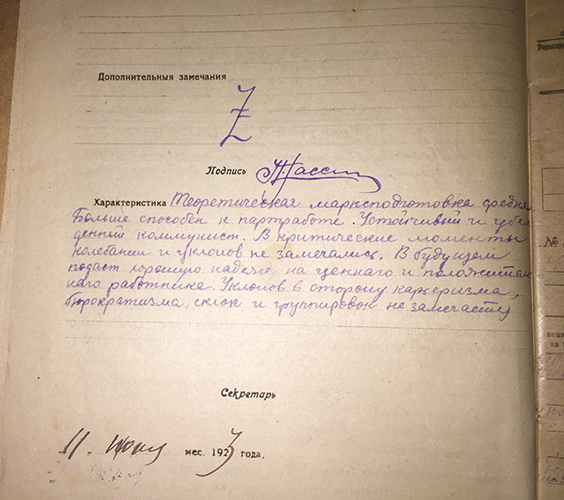 Дополнительныя замечания
Z
Подпись
Характеристика Теоретическая марксподготовка средняя
Больше способен к партработе. Устойчивый и убеж
денный коммунист. В критические моменты
колебании и уклонов не замечались. В будущем
подает хорошую надежд. на ценнаго и положител
наго работника. Уклонов в сторону карьеризма,
бюрократизма, склок и группировок не замечается
Секретарь
11. мес. 192 года.
№